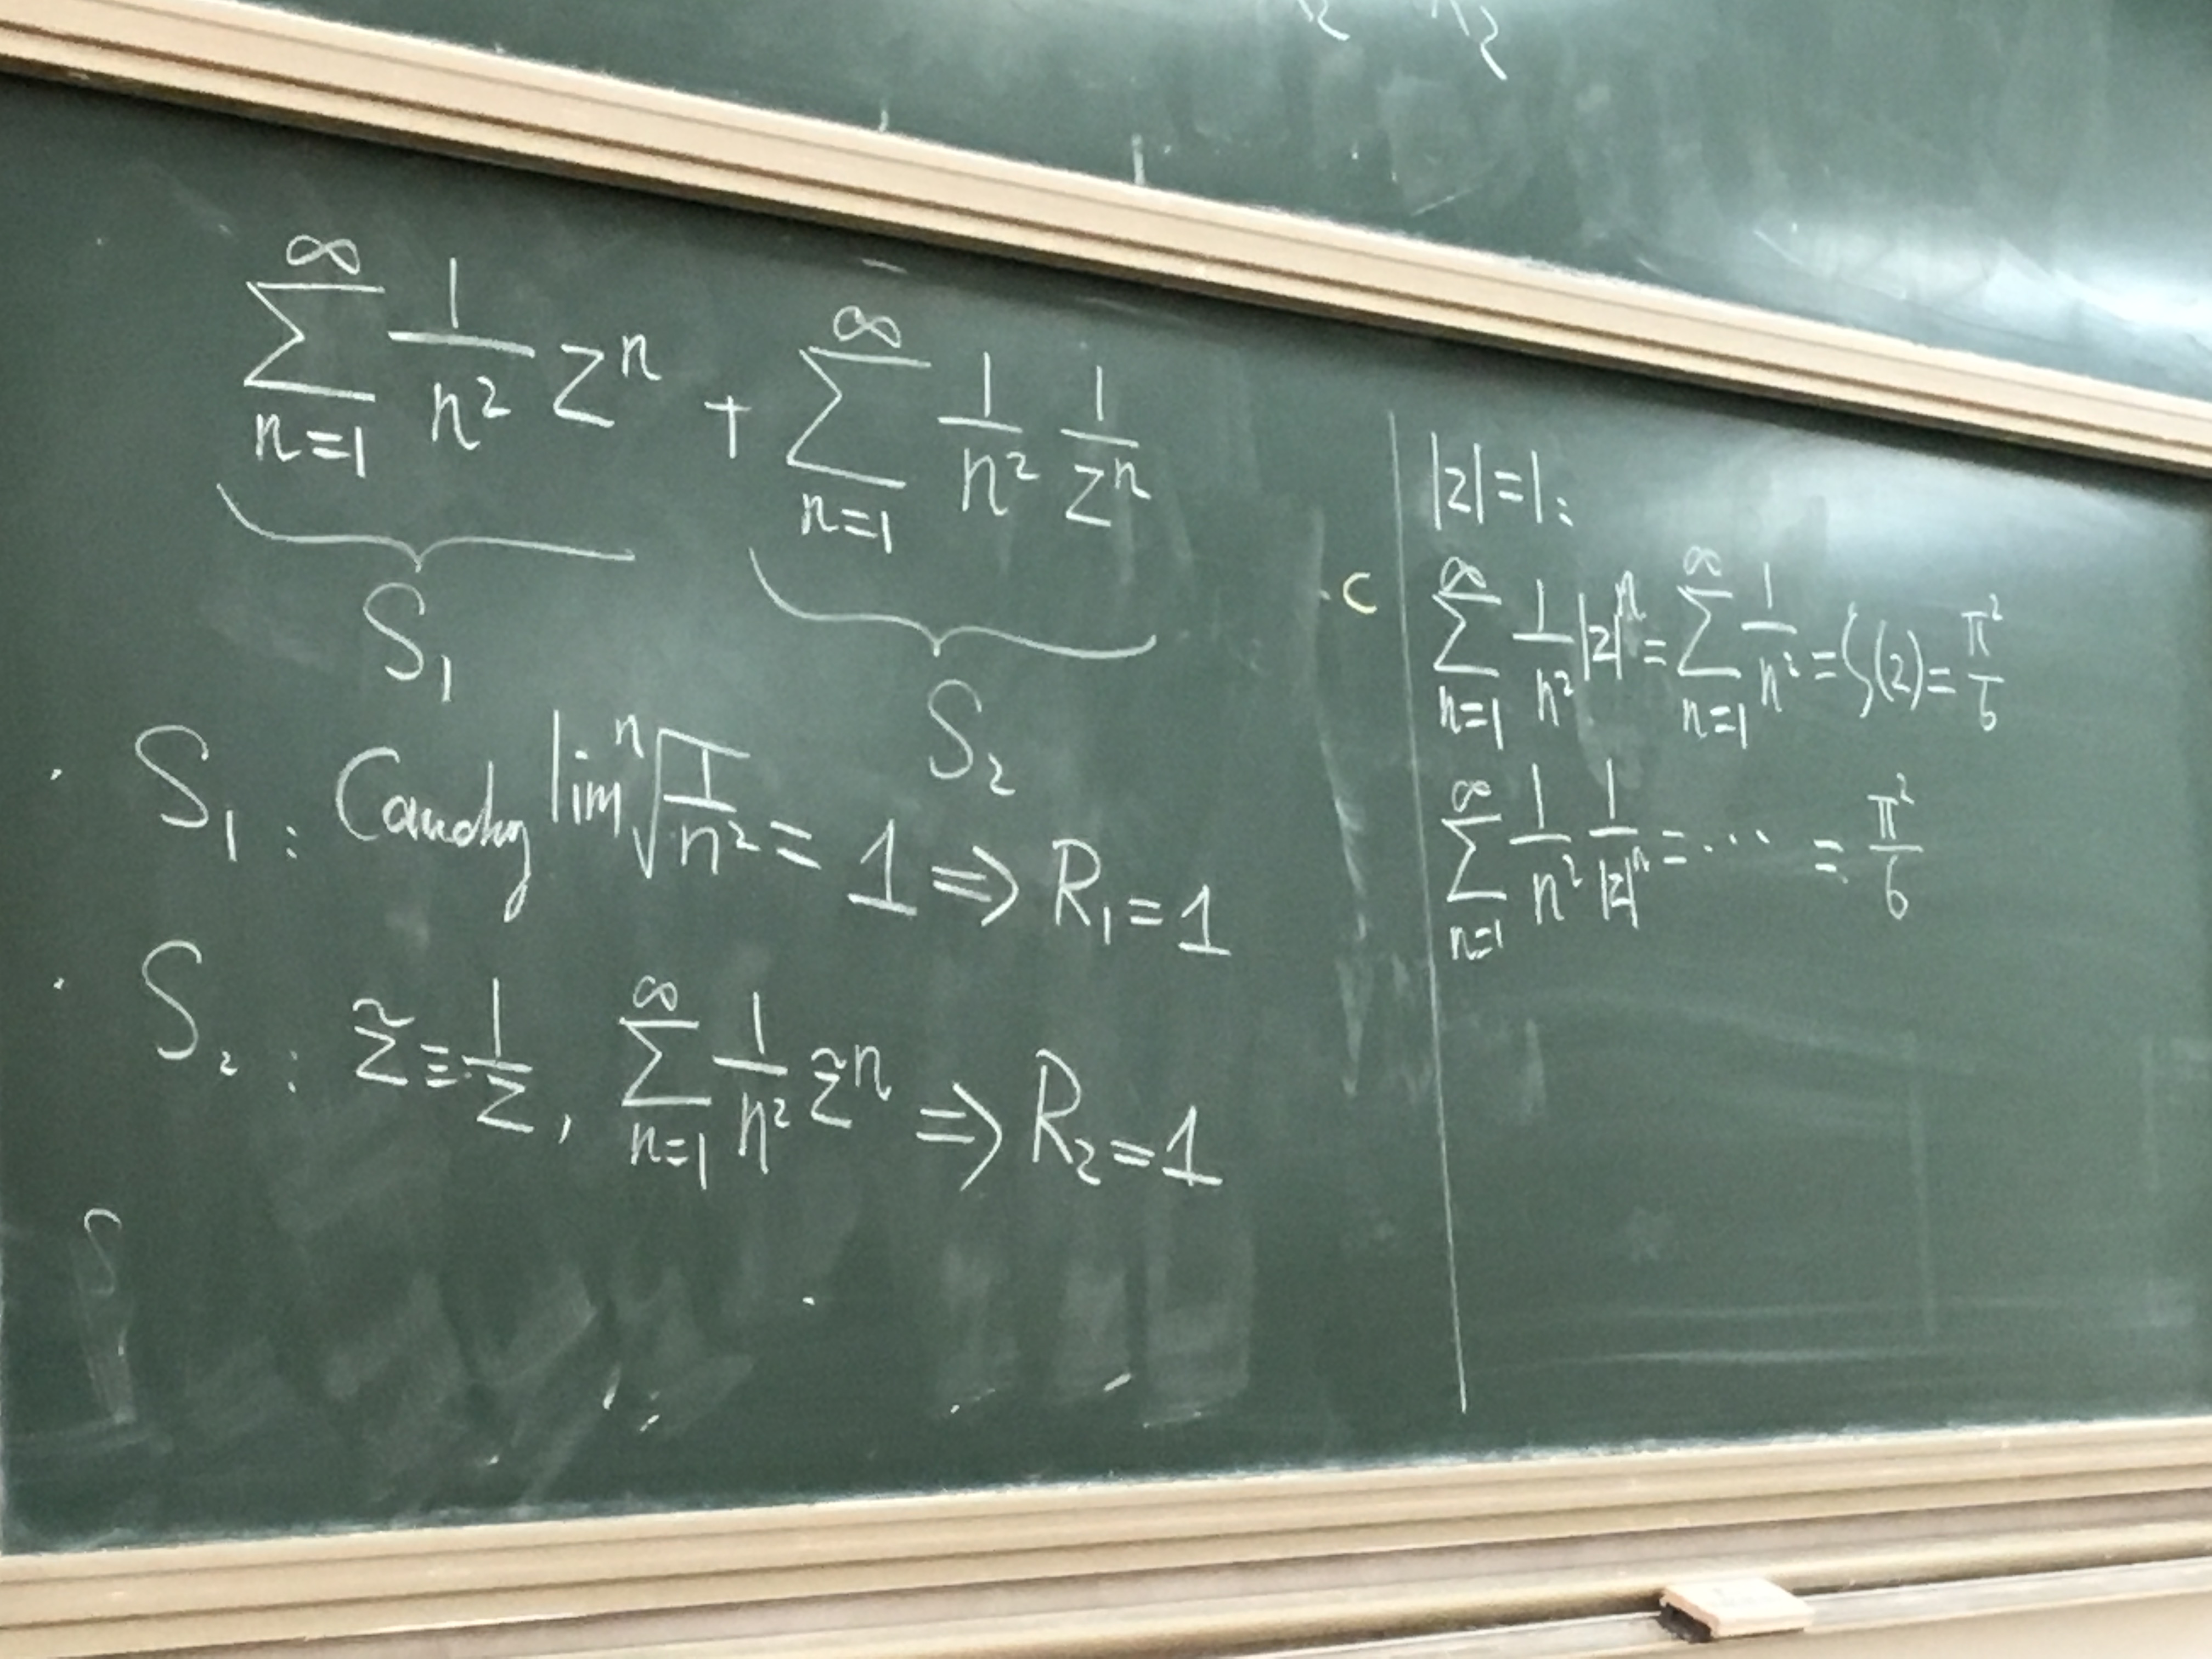 ∑_{n=1}^{∞} 1/n² zⁿ + ∑_{n=1}^{∞} 1/n² 1/zⁿ
S₁ S₂
· S₁: Cauchy lim ⁿ√(1/n²) = 1 ⇒ R₁ = 1
· S₂: z̃ ≡ 1/z, ∑_{n=1}^{∞} 1/n² z̃ⁿ ⇒ R₂ = 1
S
C
|z|=1:
∑_{n=1}^{∞} 1/n² |z|ⁿ = ∑_{n=1}^{∞} 1/n² = ζ(2) = π²/6
∑_{n=1}^{∞} 1/n² 1/|z|ⁿ = ··· = π²/6